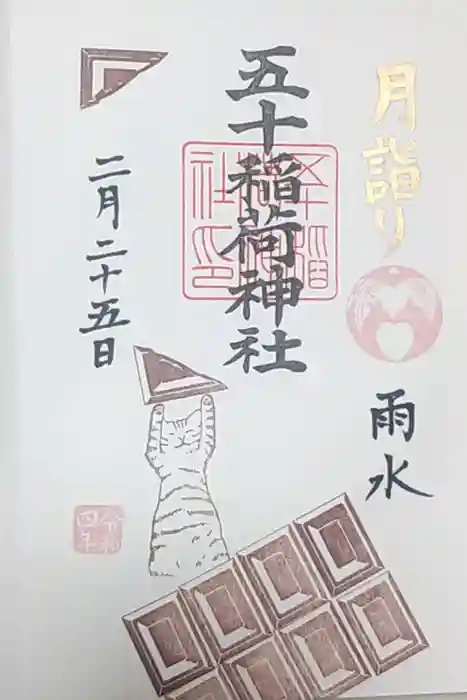 月詣り
雨水
五十稲荷神社
二月二十五日
令和
四年